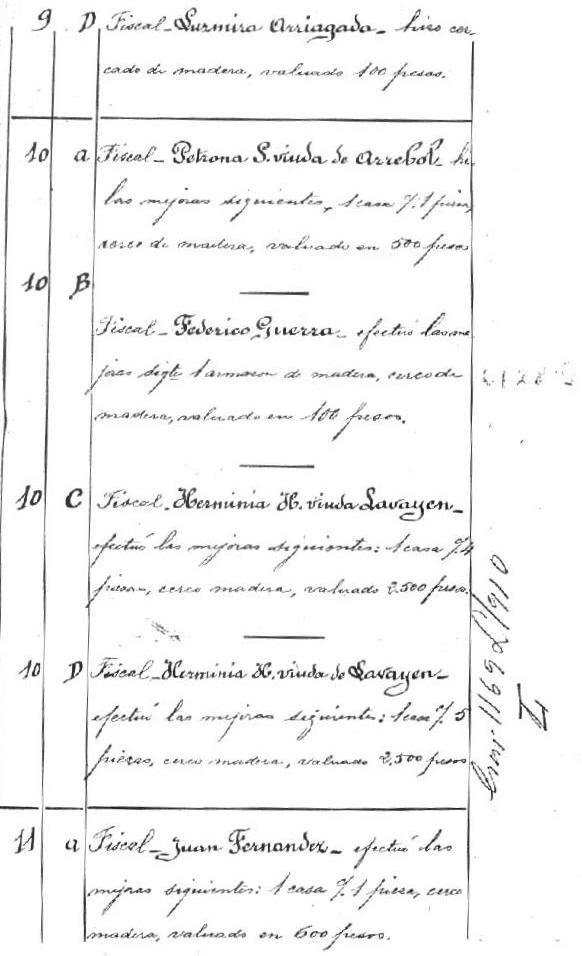 9 D Fiscal- Luzmira Arriagada- hizo cer-
cado de madera, valuado 100 pesos.
10 a Fiscal- Petrona S. viuda de Arrebol- hi
las mejoras siguientes, 1 casa %. 1 pieza,
cerco de madera, valuado en 500 pesos
10 B
Fiscal- Federico Guerra- efectuó las me
joras sigte 1 armazon de madera, cerco de
madera, valuado en 100 pesos.
10 C Fiscal- Herminia H. viuda Lavayen-
efectuó las mejoras siguientes: 1 casa %. 4
piezas, cerco madera, valuado 2.500 pesos.
10 D Fiscal- Herminia H. viuda de Lavayen-
efectuó las mejoras siguientes: 1 casa %. 5
piezas, cerco madera, valuado 2,500 pesos
11 a Fiscal- Juan Fernandez- efectuó las
mejoras siguientes: 1 casa %. 1 pieza, cerco
madera, valuado en 600 pesos.
1169 L/910
I